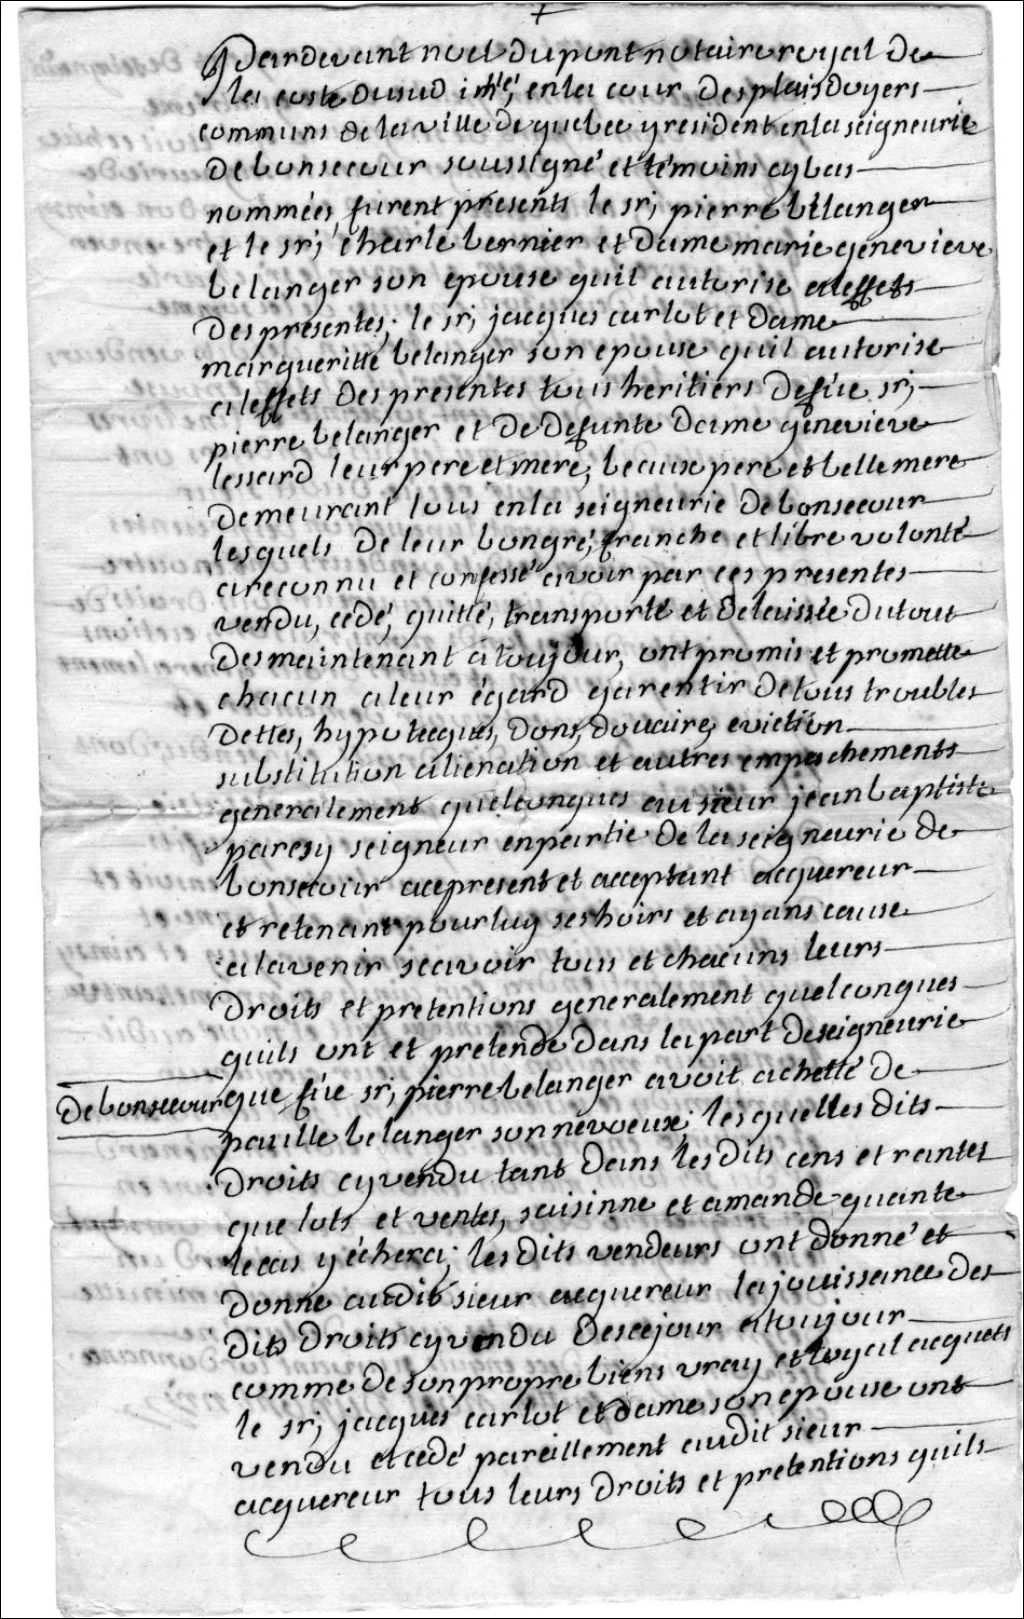 +
Pardevant noel dupont notaire royal de
la coste du sud imé, en la cour des plaisdoyers
communs de la ville de quebec y resident en la seigneurie
de bonsecour soussigné et témoins cy bas
nommées, furent présents le sr, pierre bélanger
et le sr, charle bernier et dame marie genevieve
belanger son epouse quil autorise aleffets
des presentes, le sr, jacques carlot et dame
margueritte belanger son epouse quil autorise
aleffets des presentes tous heritiers defüe sr,
pierre belanger et de defunte dame genevieve
lessard leur pere et mere, beaux pere et belle mere
demeurant tous en la seigneurie de bonsecour
lesquels de leur bongré, franche et libre volonté
areconnu et confessé avoir par ces presentes
vendu, cédé, quitté, transporté et delaissée du tout
des maintenant a toujour, ont promis et promette
chacun a leur égard garentir de tous troubles
dettes, hypotecques, dons, douaire, eviction
substitution alienation et autres empechements
generalement quelconques au sieur jean baptiste
paresy seigneur en partie de la seigneurie de
bonsecour ace present et acceptant acquereur
et retenant pour luy ses hoirs et ayans cause
a lavenir scavoir tous et chacuns leurs
droits et pretentions generalement quelconques
quils ont et pretende dans la part de seigneurie
de bonsecour
que füe sr, pierre belanger avoit achetté de
paulle belanger son neveux, lesquelles dits
droits cy vendu tant dans les dits cens et rantes
que lots et ventes, saisinne et amande quante
le cas y échera; les dits vendeurs ont donné et
donne audit sieur acquereur la jouissance des
dits droits cy vendu des ce jour a toujour
comme de son propre biens vray et loyal acquets
le sr, jacques carlot et dame son epouse ont
vendu et cedé pareillement audit sieur
acquereur tous leurs droits et pretentions quils